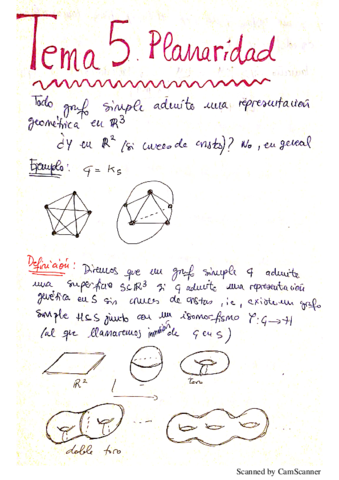 Tema 5. Planaridad
Todo grafo simple admite una representación
geométrica en R³
¿Y en R² (si cruces de aristas)? No, en general
Ejemplo: G = K5
Definición: Diremos que un grafo simple G admite
una superficie S⊂R³ si G admite una representación
gráfica en S sin cruces de aristas, ie, existe un grafo
simple H⊂S junto con un isomorfismo Ψ: G→H
(al que llamaremos inmersión de G en S)
R²
toro
doble toro
Scanned by CamScanner